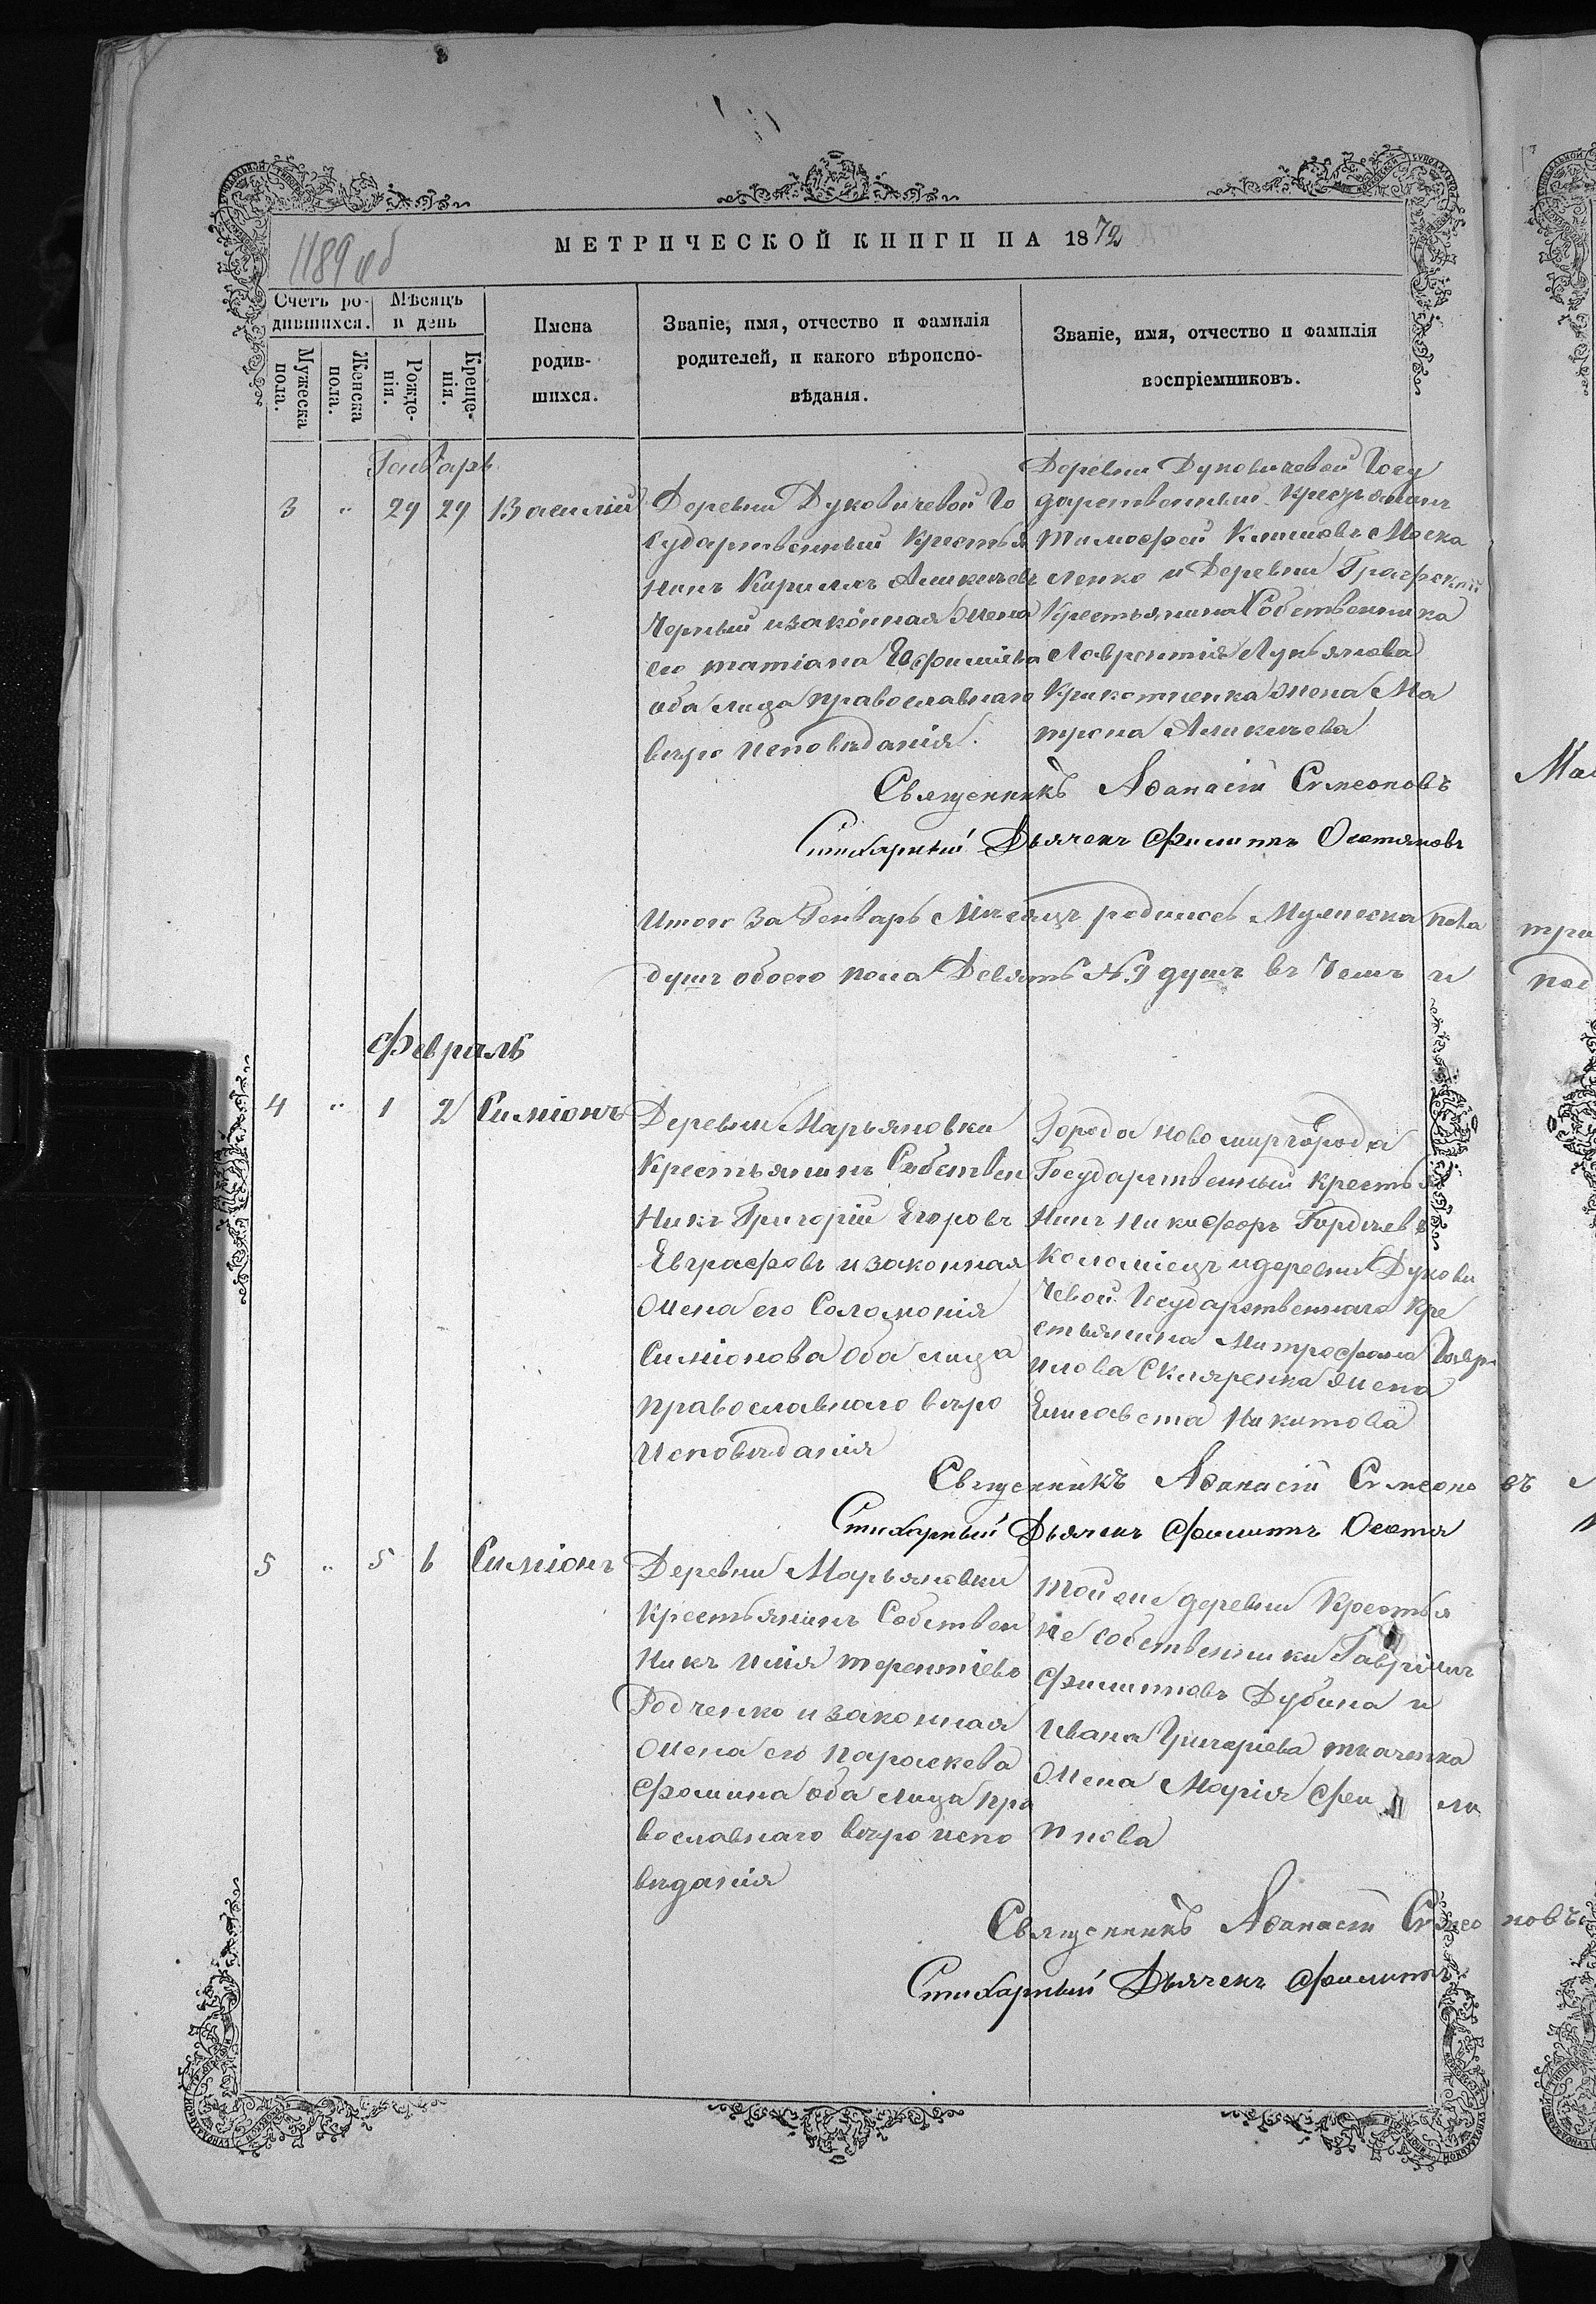 1189 об
МЕТРИЧЕСКОЙ КНИГИ НА 1872
Счетъ ро-
дившихся.
Мужеска
пола.
Женска
пола.
Мѣсяцъ
и день
Рожде-
нія.
Креще-
нія.
Имена
родив-
шихся.
Званіе, имя, отчество и фамилія
родителей, и какого вѣроиспо-
вѣданія.
Званіе, имя, отчество и фамилія
воспріемниковъ.
Генварь
3 " 29 29 Василій
Деревни Дуковичевой Го
сударственный Крестья
нинъ Кириллъ Аникіевъ
Черный и законная жена
его татіана Ефиміева
оба лица православнаго
вѣро исповѣданія.
Деревни Дуковичевой Госу
дарственный Крестьянинъ
Тимофей Климовъ Моска
ленко и Деревни Графской
Крестьянина Собственника
Лаврентія Лукьянова
жена Ма
трона Аникіева
Священникъ Аѳанасій Симеоновъ
Стихарный Дьячекъ Филиппъ
Итого За Генварь Мѣсяцъ родилось Мужеска пола
душъ обоего пола Девять №9 душъ въ Чемъ и
Февраль
4 " 1 2 Симіонъ
Деревни Марьяновки
Крестьянинъ Собствен
никъ Григорій Егоровъ
Евграфовъ и законная
жена его Соломонія
Симіонова оба лица
православнаго вѣро
Исповѣданія
Города ново миргорода
Государственный крестья
нинъ Никифоръ Гордѣевъ
Коломіецъ и деревни Дукови
чевой Государственнаго Кре
стьянина Митрофана Гаври
илова Скляренка жена
Елисавета Никитова
Священникъ Аѳанасій Симеоно въ
Стихарный Дьячекъ Филиппъ
5 " 5 6 Симіонъ
Деревни Марьяновки
Крестьянинъ Собствен
никъ Илія терентіевъ
Родченко и законная
жена его параскева
Фомина оба лица пра
вославнаго вѣро испо
вѣданія
той же деревни Крестья
не собственники Гавріилъ
Филипповъ Дубина и
Ивана Григоріева ткаченка
жена Марія Фи ли
ппова
Священникъ Аѳанасій Симео новъ
Стихарный Дьячекъ Филиппъ